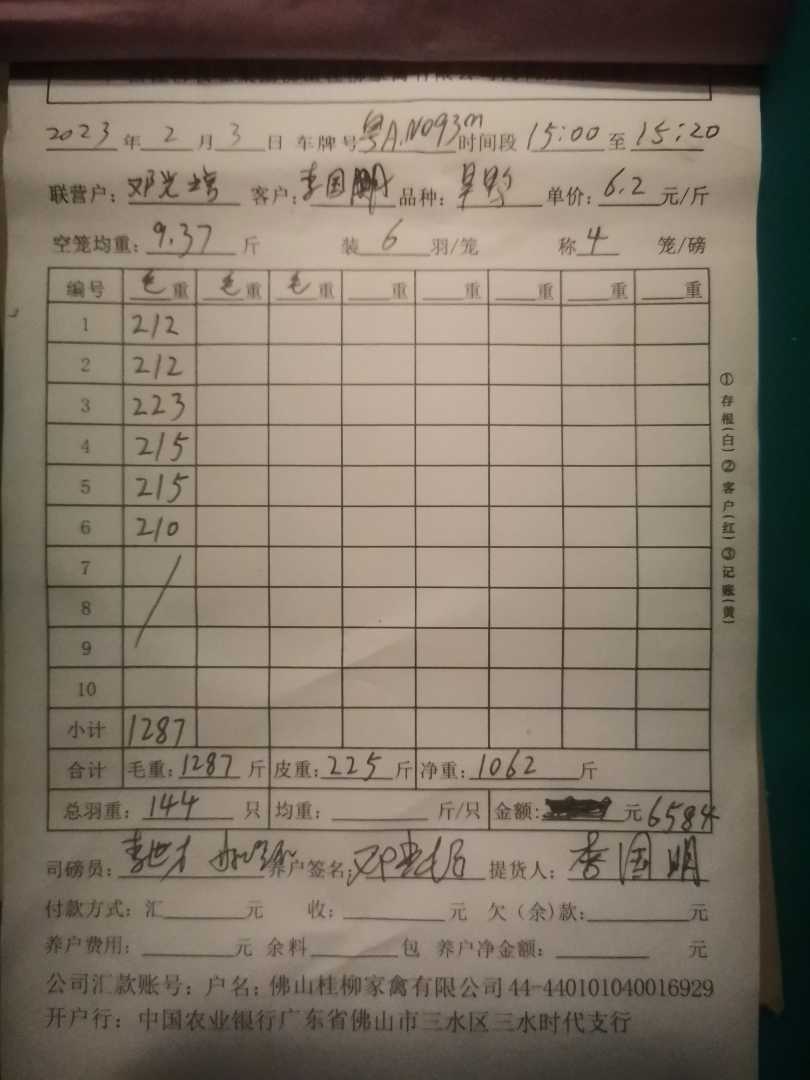 2023年2月3日 车牌号粤A.N093m时间段15:00至15:20
联营户: 邓 客户:李国鹏 品种: 单价:6.2元/斤
空笼均重:9.37斤 装6羽/笼 称4笼/磅
编号 毛重 毛重 毛重 重 重 重 重 重
1 212
2 212
3 223
4 215
5 215
6 210
7
8
9
10
小计 1287
合计 毛重:1287斤 皮重:225斤 净重:1062斤
总羽重:144只 均重: 斤/只 金额: 元6584
司磅员: 养户签名: 提货人:李国明
付款方式:汇 元 收: 元 欠(余)款: 元
养户费用: 元 余料 包 养户净金额: 元
公司汇款账号:户名:佛山桂柳家禽有限公司44-440101040016929
开户行:中国农业银行广东省佛山市三水区三水时代支行
①存根(白)②客户(红)③记账(黄)